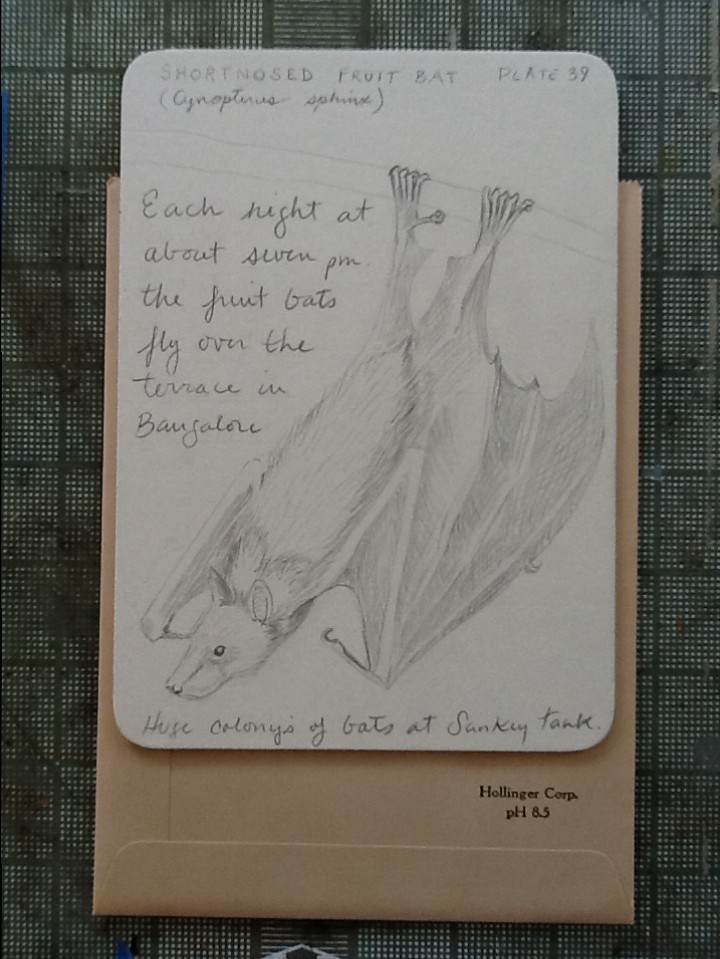 SHORTNOSED FRUIT BAT PLATE 39
(Cynopterus sphinx)
Each night at
about seven pm
the fruit bats
fly over the
terrace in
Bangalore
Huge colony's of bats at Sankey tank.
Hollinger Corp.
pH 8.5